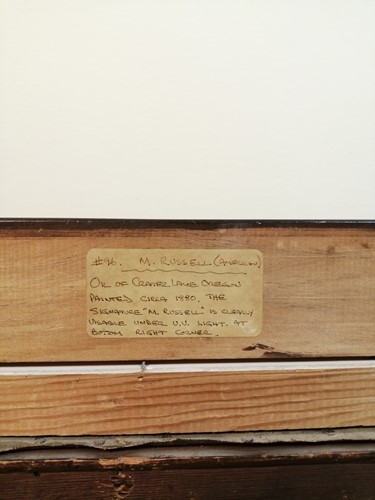 #96. M. RUSSELL (AMERICAN)
OIL OF CRATER LAKE OREGON
PAINTED CIRCA 1880. THE
SIGNATURE "M. RUSSELL" IS CLEARLY
VISABLE UNDER U.V. LIGHT. AT
BOTOM RIGHT CORNER.